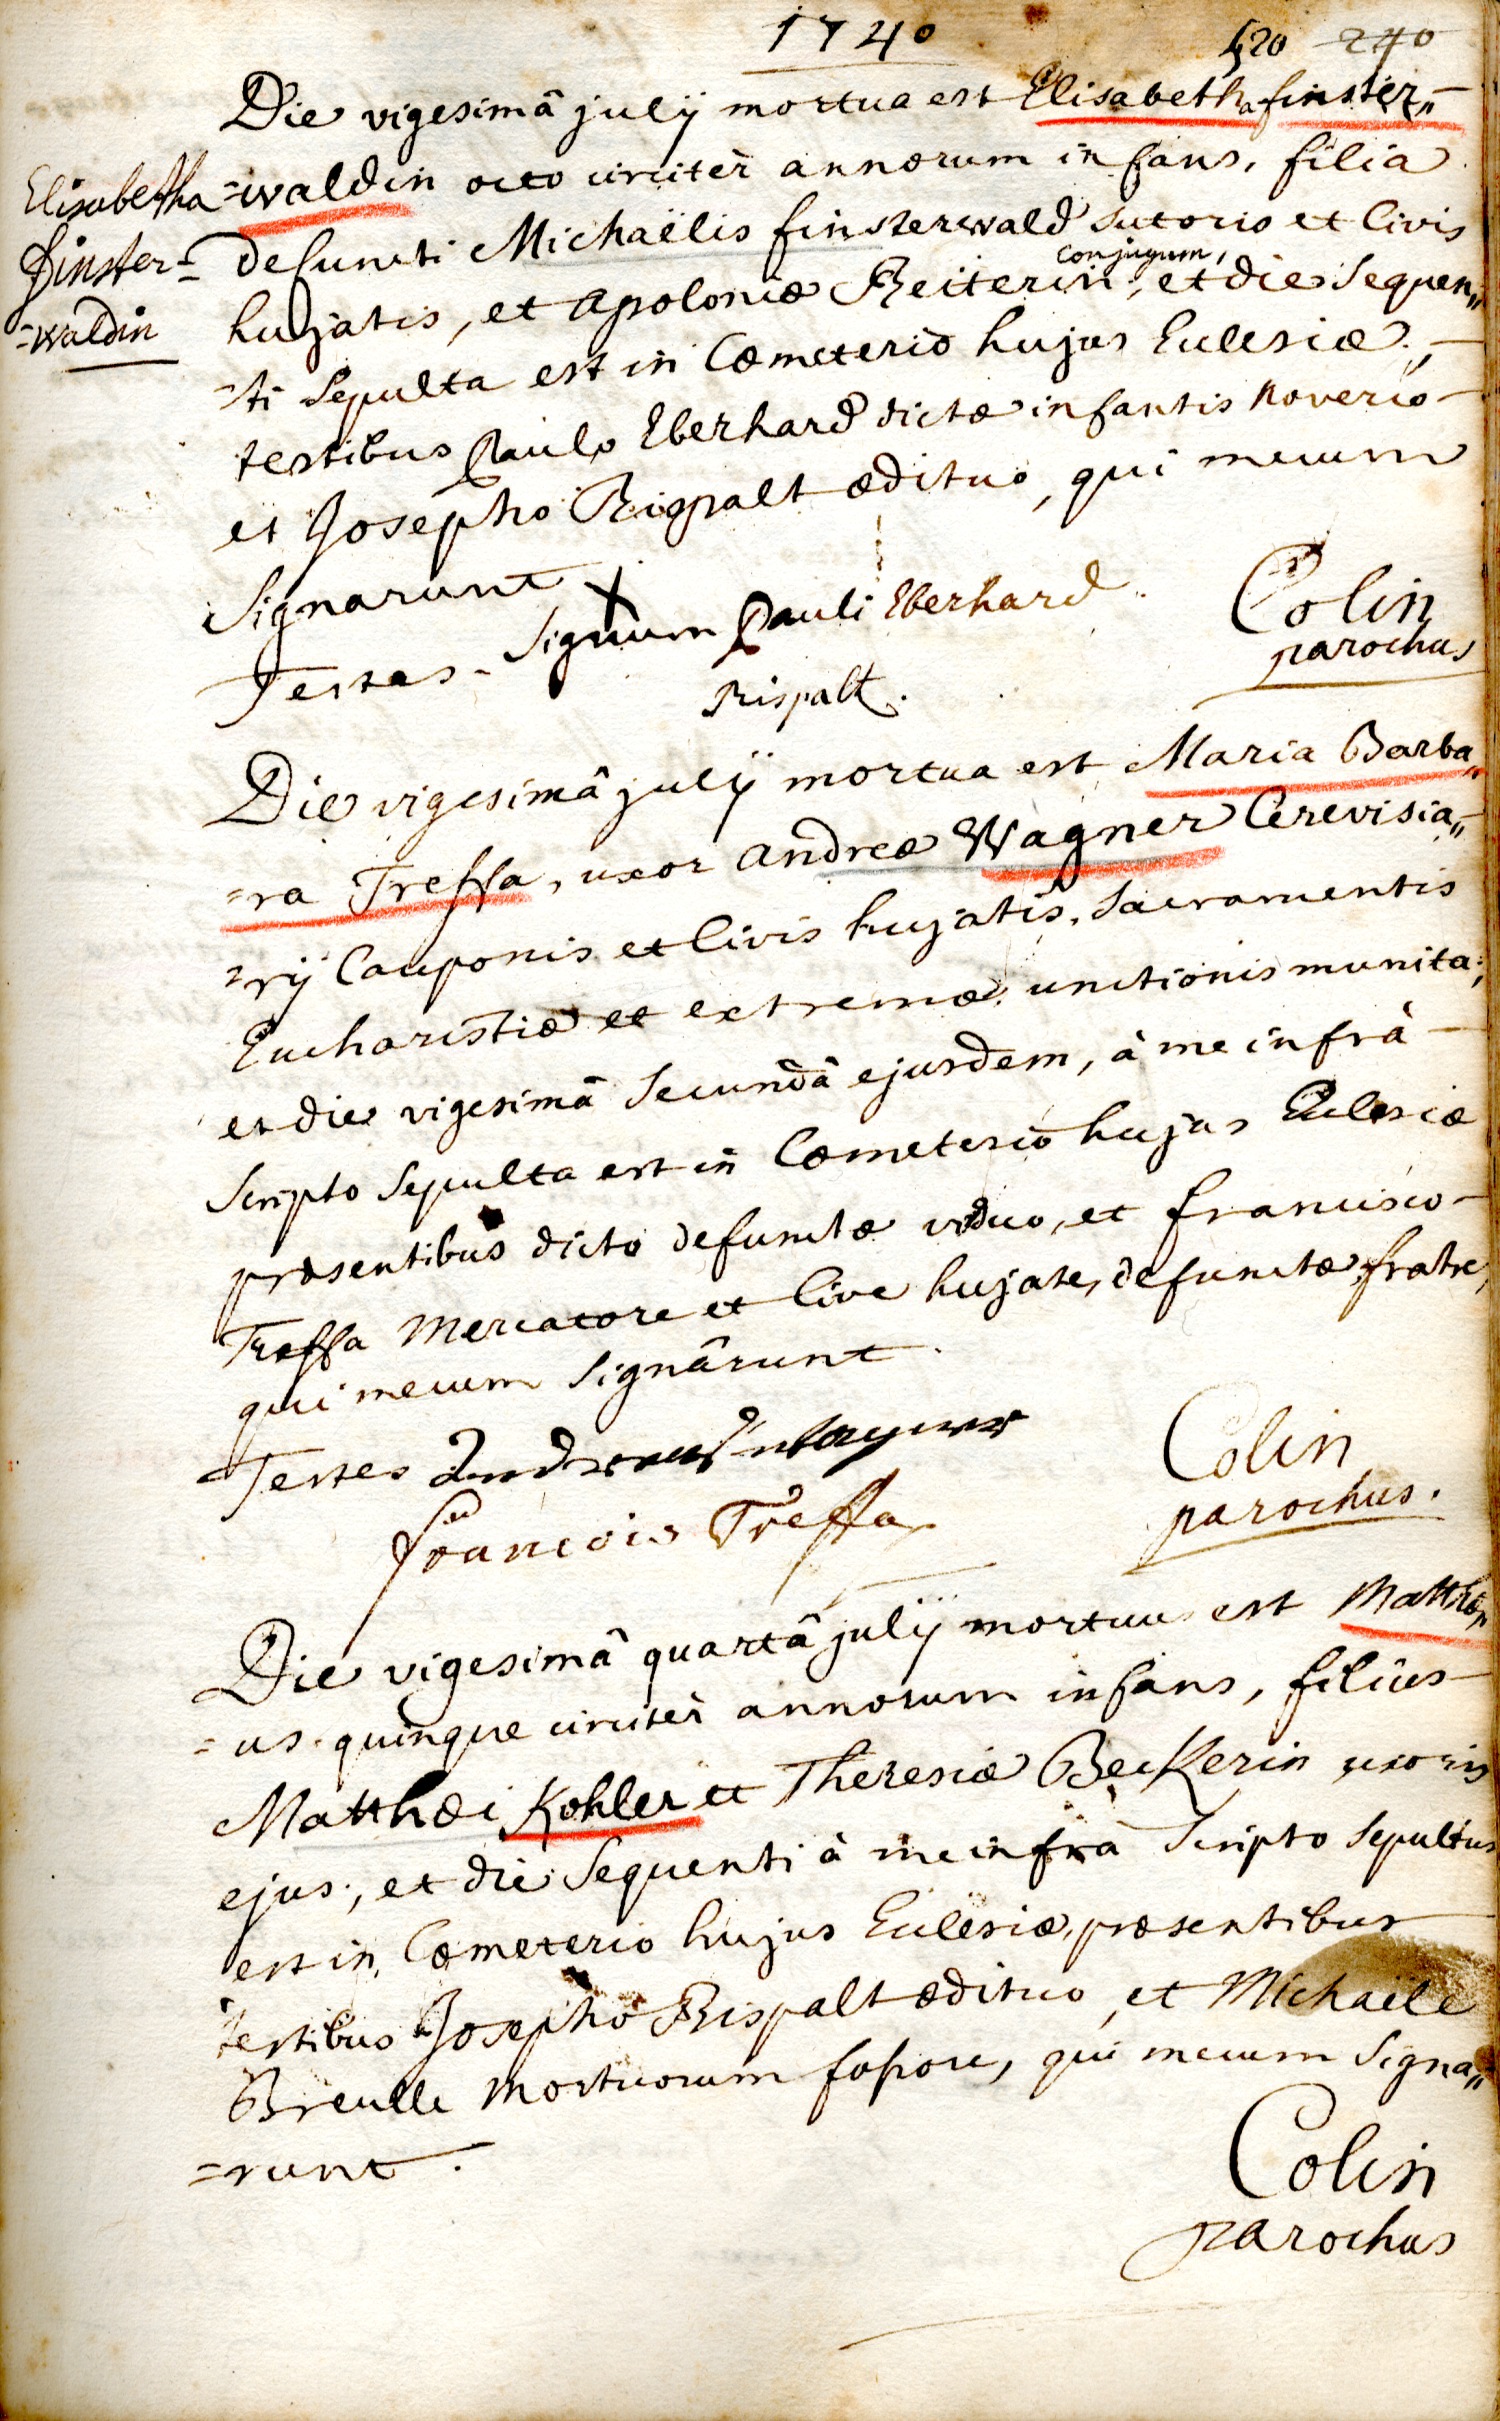 1740
520 240
Die vigesimâ julij mortua est Elisabetha finster„
Elisabetha
=waldin octo circiter annorum infans, filia
finster=
defuncti Michaëlis finsterwald sutorio et Civis
conjugum,
=waldin
hujatis, et apoloniæ Reiterin, et die sequen„
=ti sepulta est in Cœmeterio hujus Ecclesiæ;
testibus Paulo Eberhard dictæ infantis noverio
et Josepho Rispalt ædituo, qui mecum
signarunt X
Testes - signum Pauli Eberhard
Colin
parochus
Rispalt.
Die vigesimâ julij mortua est Maria Barba„
=ra Treffa, uxor andreæ Wagner Cerevisia„
=rij Cauponis et Civis hujatis, Sacramentis
Eucharistiæ et extremæ unctionis munita;
et die vigesimâ secundâ ejusdem, à me infrà
scripto sepulta est in Cœmeterio hujus Ecclesiæ
præsentibus dicto defunctæ viduo, et francisco
Treffa Mercatore et Cive hujate, defunctæ fratre,
qui mecum signârunt.
Testes Andreas Wagner
Colin
parochus.
françois Treffa
Die vigesimâ quartâ julij mortuus est Matthæ„
=us quinque circiter annorum infans, filius
Matthæi Kohler et Theresiæ Beckerin uxoris
ejus; et die sequenti à me infrà scripto sepultus
est in Cœmeterio hujus Ecclesiæ, præsentibus
testibus Josepho Rispalt ædituo, et Michaële
Breulle mortuorum fossore, qui mecum signa„
=runt.
Colin
parochus